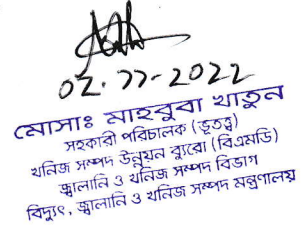 02.11.2022
মোসাঃ মাহবুবা খাতুন
সহকারী পরিচালক (ভূতত্ত্ব)
খনিজ সম্পদ উন্নয়ন ব্যুরো (বিএমডি)
জ্বালানি ও খনিজ সম্পদ বিভাগ
বিদ্যুৎ, জ্বালানি ও খনিজ সম্পদ মন্ত্রণালয়